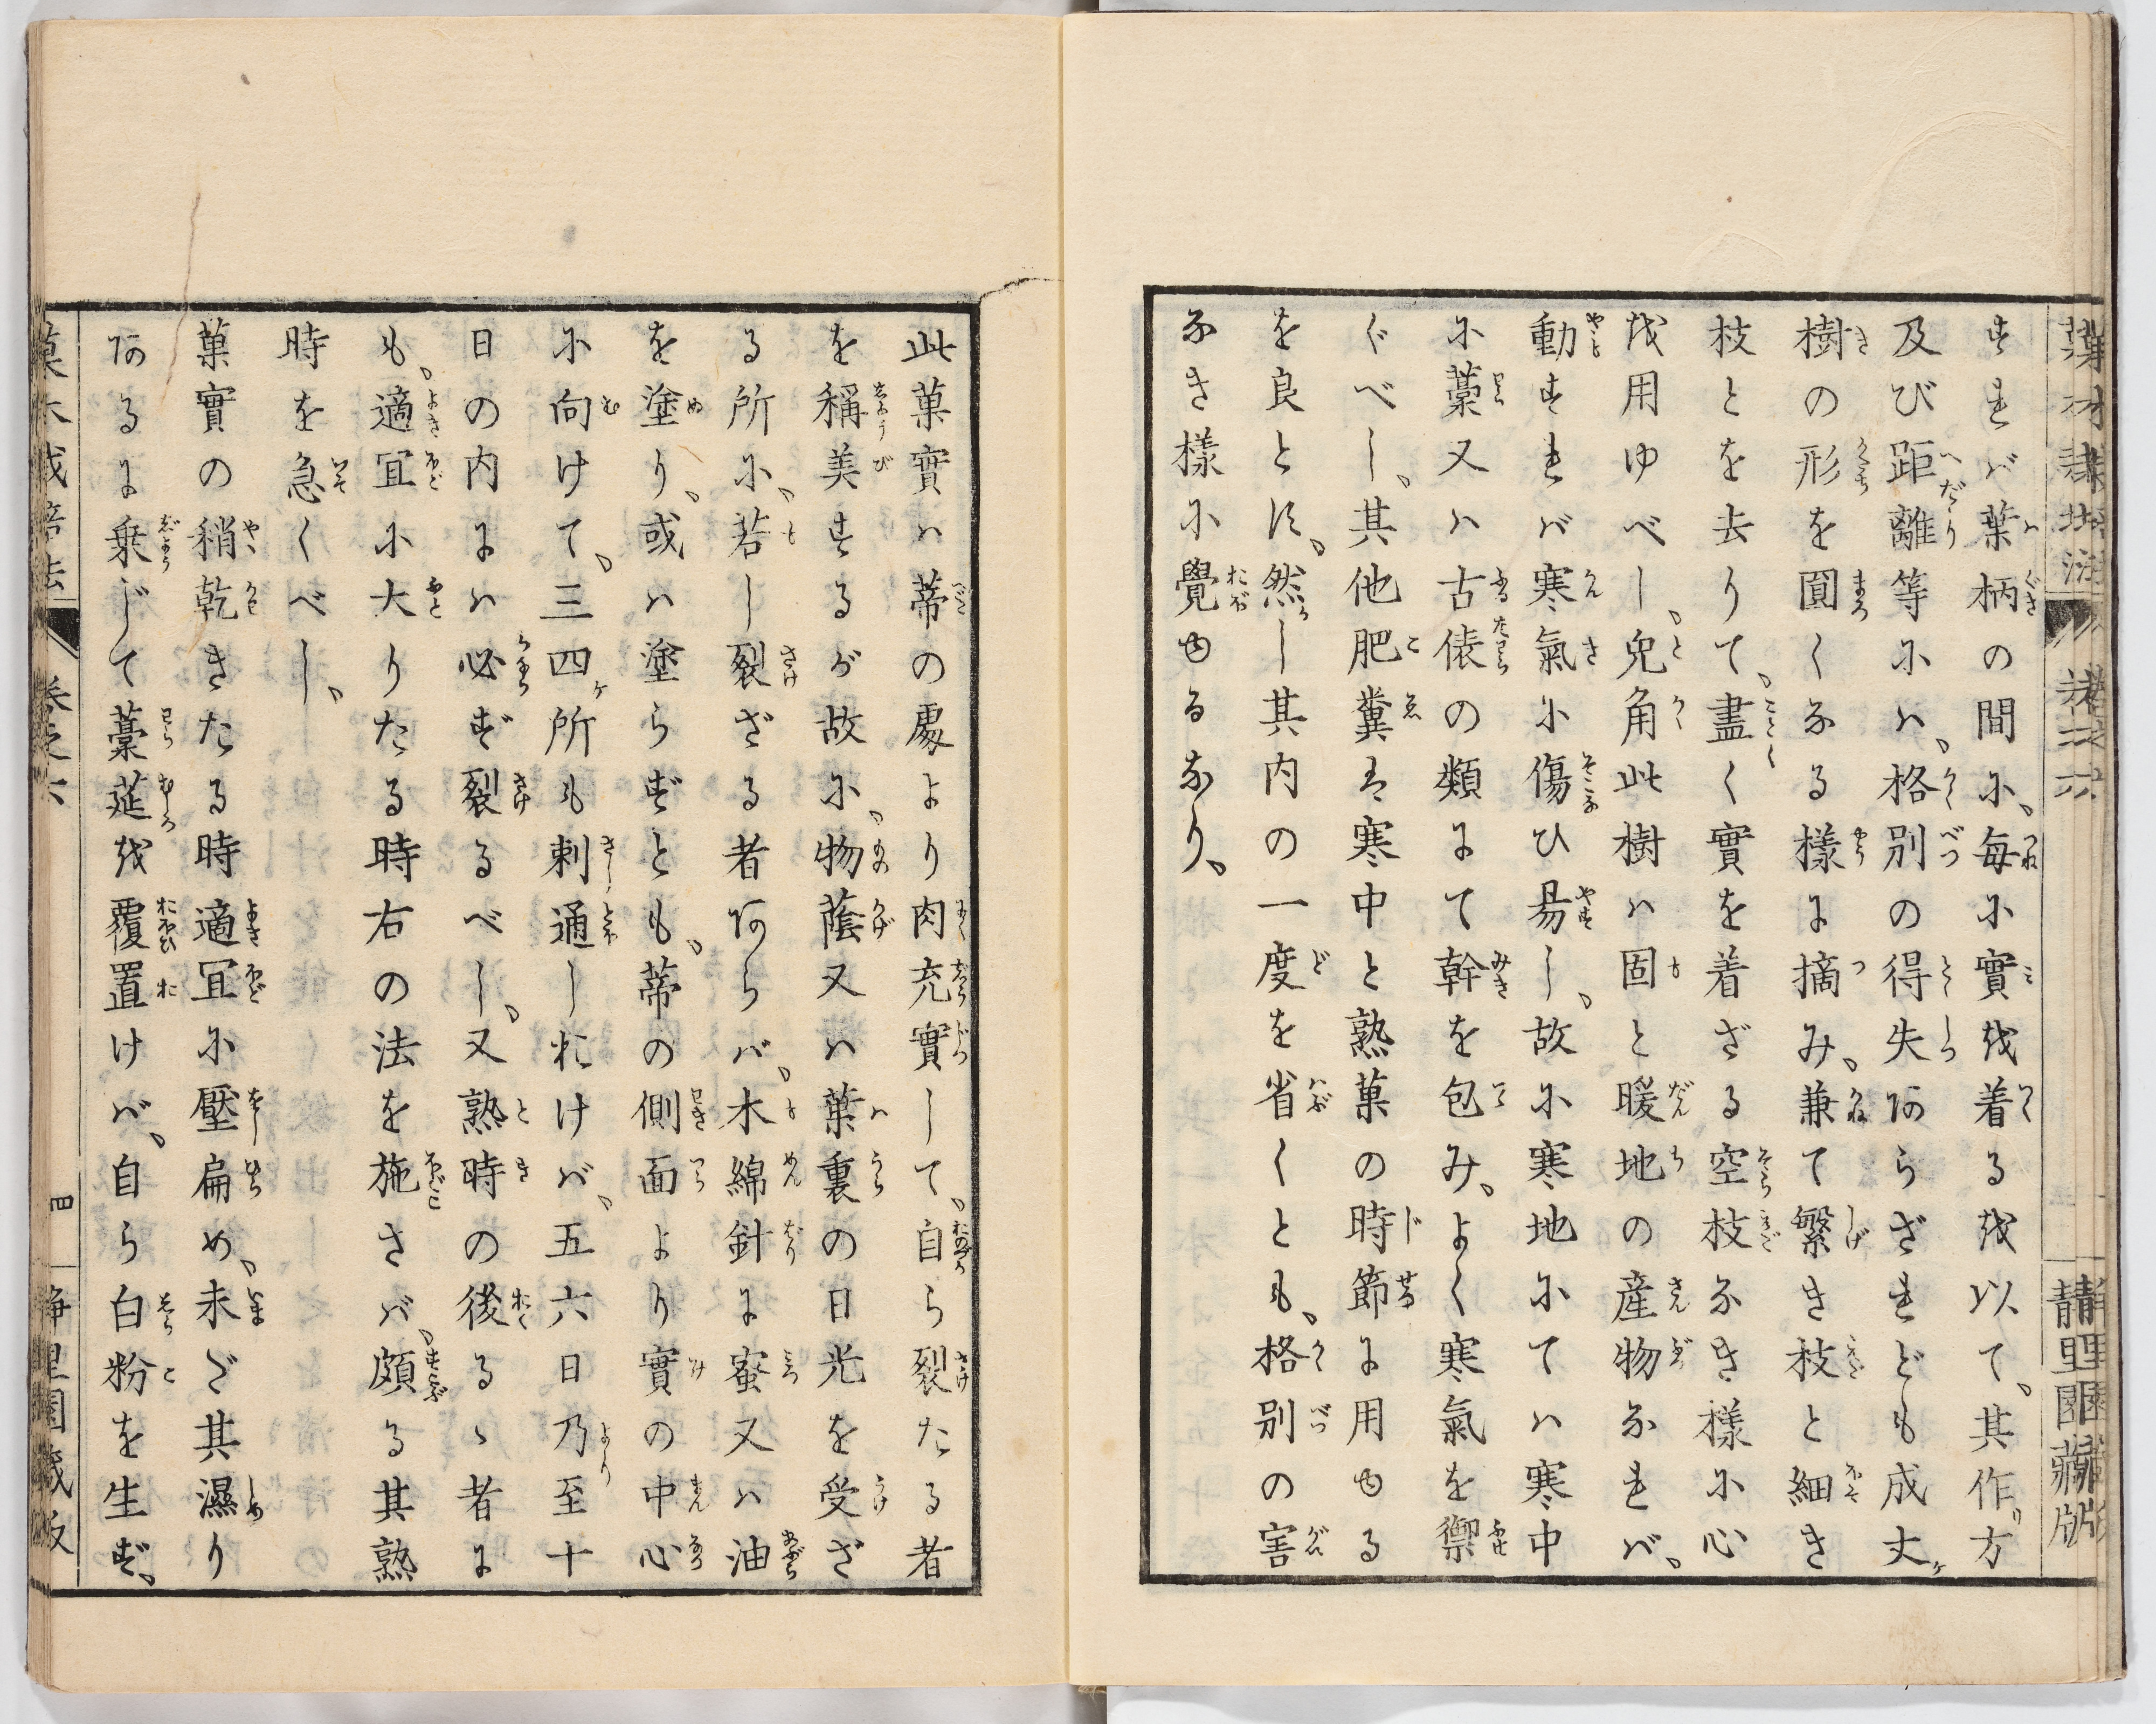 すれバ葉柄の間に、毎に實を着るを以て、其作方
及び距離等にハ、格別の得失あらざれども成丈
樹の形を圓くなる様に摘み、兼て繁き枝と細き
枝とを去りて、盡く實を着ざる空枝なき様に心
を用ゆべし、兎角此樹ハ固と暖地の産物なれバ、
動すれバ寒氣に傷ひ易し、故に寒地にてハ寒中
に藁又ハ古俵の類にて幹を包み、よく寒氣を禦
ぐべし、其他肥糞は寒中と熟菓の時節に用ゆる
を良とす、然し其内の一度を省くとも、格別の害
なき様に覺ゆるなり、
此菓實ハ蒂の處より肉充實して、自ら裂たる者
を稱美するが故に、物蔭又ハ葉裏の日光を受ざ
る所に、若し裂ざる者あらバ、木綿針に蜜又ハ油
を塗り、或ハ塗らずとも、蒂の側面より實の中心
に向けて、三四ケ所も刺通しおけバ、五六日乃至十
日の内にハ必ず裂るべし、又熟時の後るゝ者に
も、適宜に大りたる時右の法を施さバ、頗る其熟
時を急くべし、
菓實の稍乾きたる時適宜に壓扁め、未ざ其濕り
あるに乗じて藁莚を覆置けバ、自ら白粉を生ず、
菓木栽培法
卷之六
四
静里園藏版